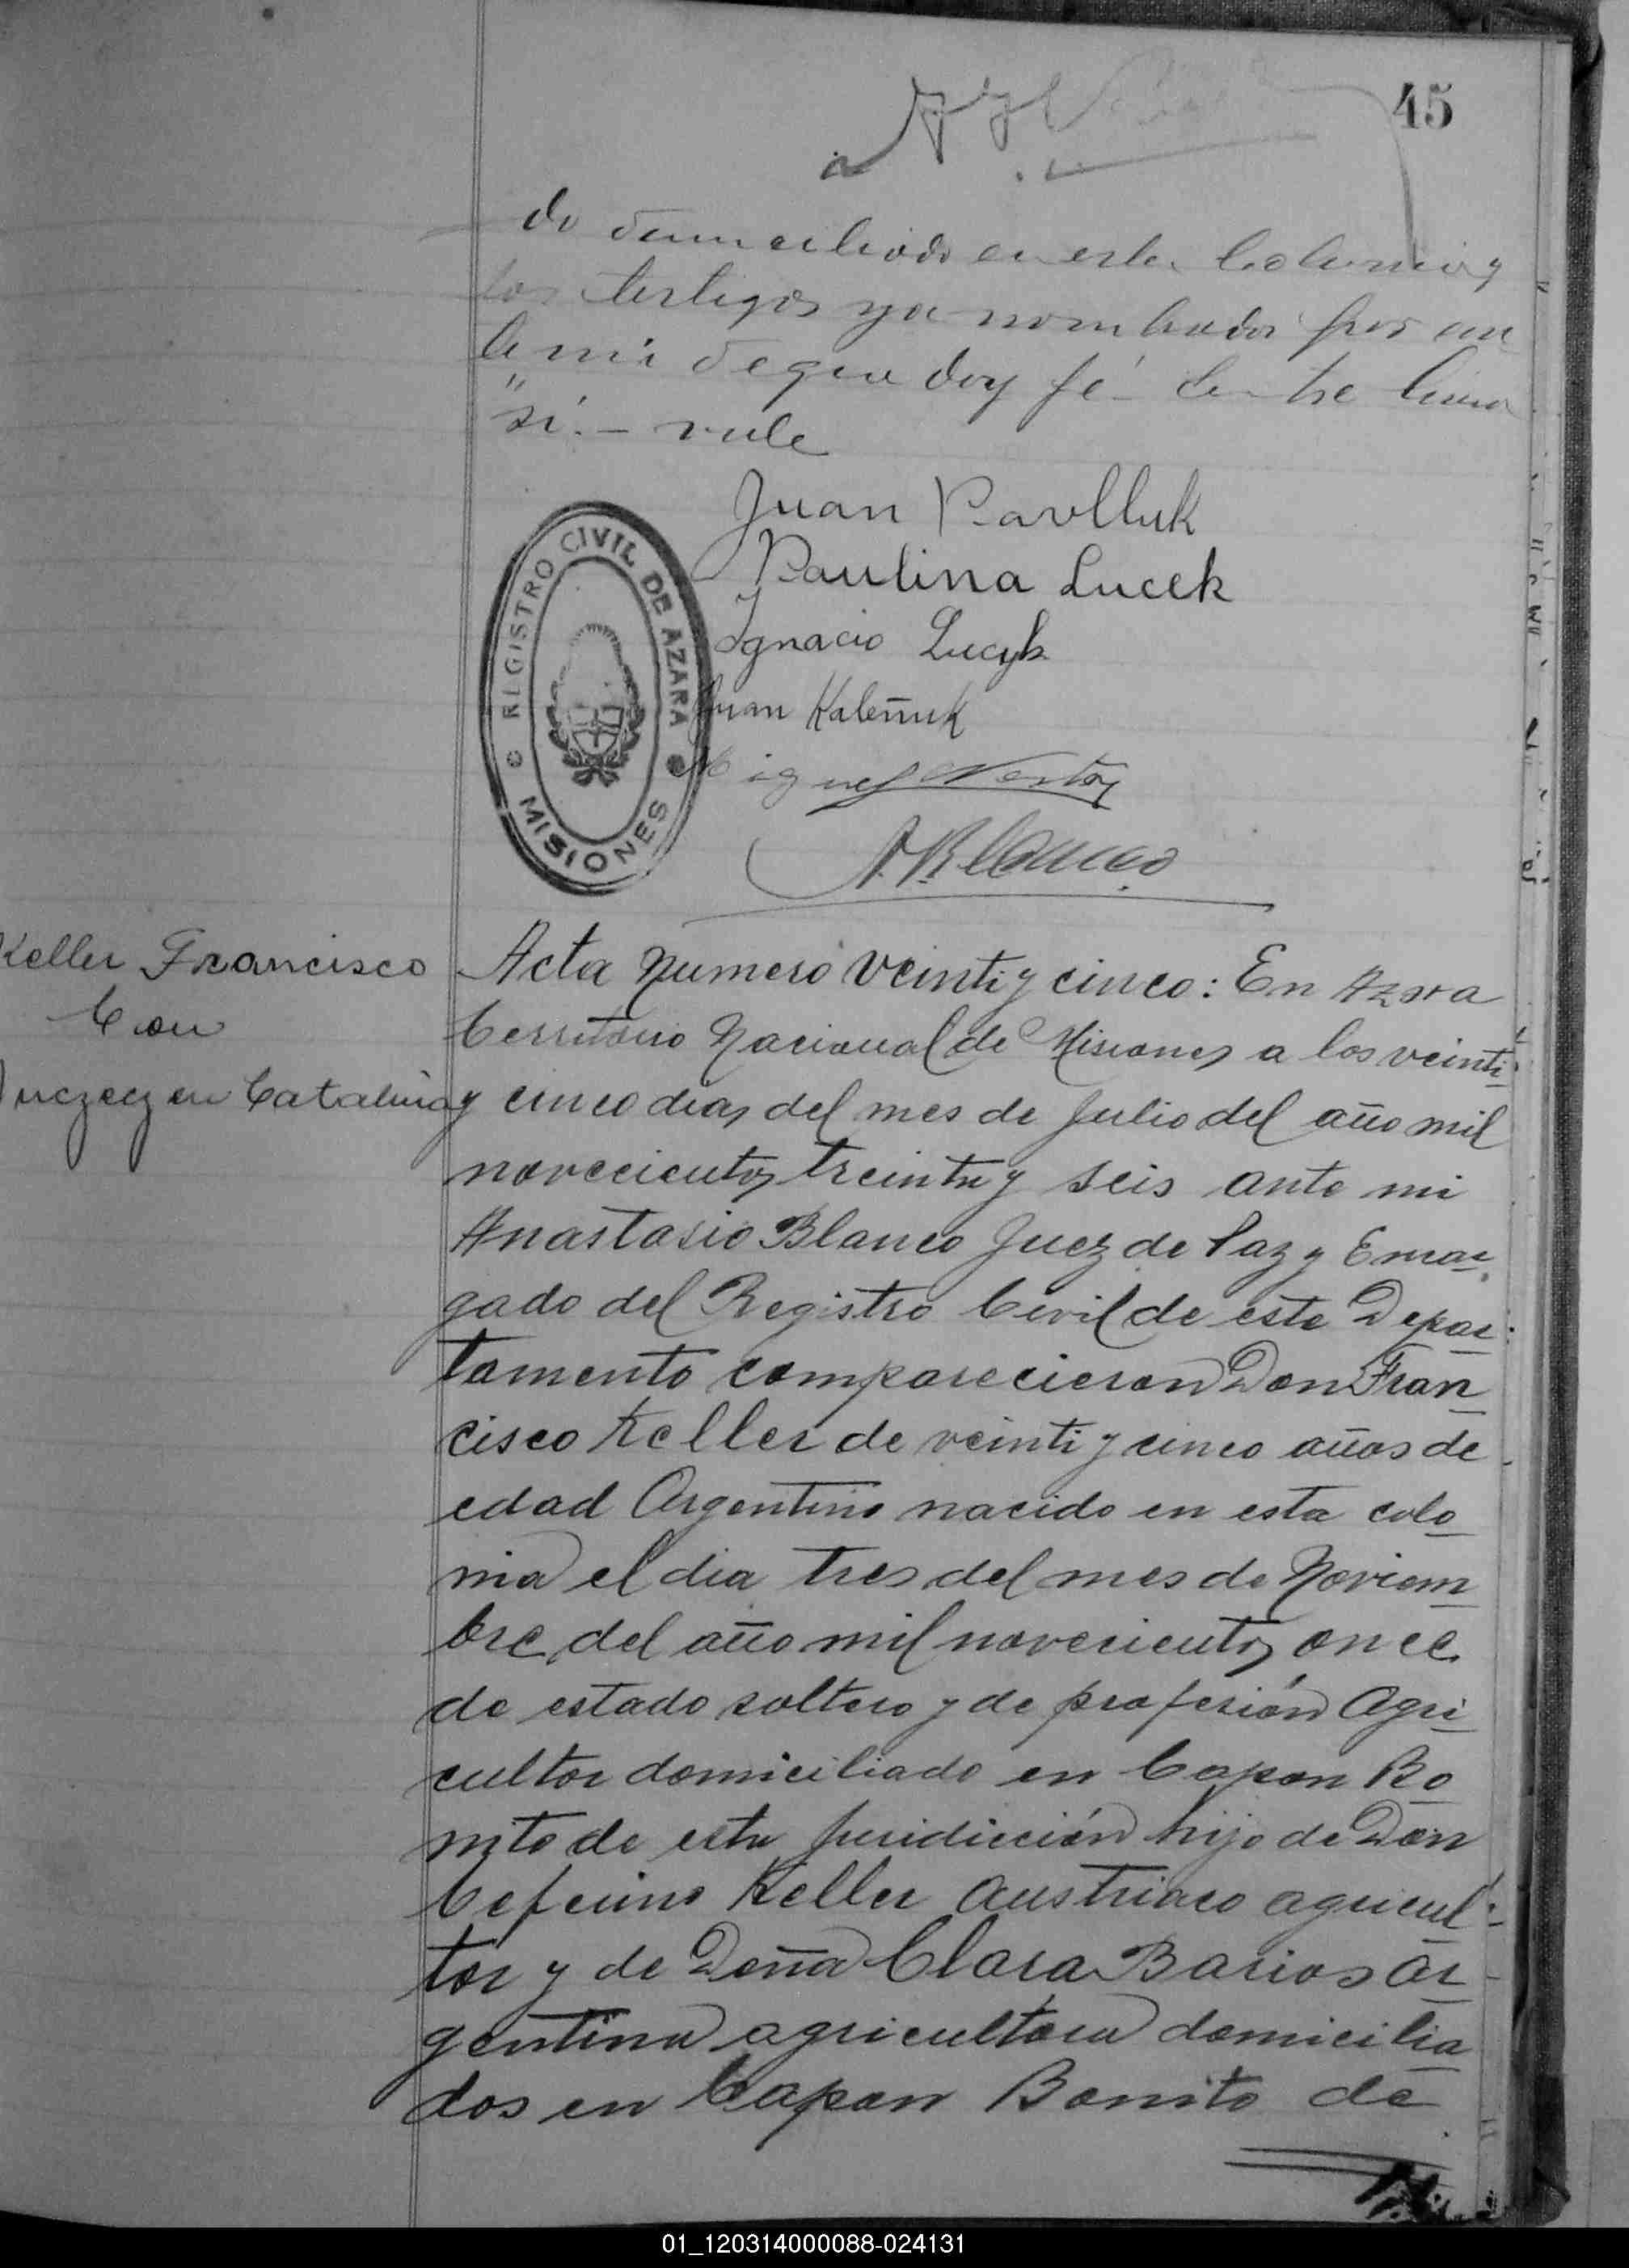 45
do domiciliado en esta Colonia y
los testigos ya nombrados por an
te mi de que doy fé - Entre linea
"si" - vale
Juan Pavlluk
Paulina Lucek
Ignacio Lucyk
Juan Kaleñuk
Miguel Nestor
A. Blanco
REGISTRO CIVIL DE AZARA
MISIONES
Keller Francisco
Con
en Catalina
Acta Numero Veinti y cinco: En Azara
Territorio Nacional de Misiones a los veinti
y cinco dias del mes de Julio del año mil
novecientos treinta y seis ante mi
Anastasio Blanco Juez de Paz y Encar
gado del Registro Civil de este Depar
tamento comparecieron Don Fran
cisco Keller de veinti y cinco años de
edad Argentino nacido en esta colo
nia el dia tres del mes de Noviem
bre del año mil novecientos once
de estado soltero y de profesión Agri
cultor domiciliado en Capon Bo
nito de esta Juridicción hijo de Don
Ceferino Keller Austriaco agricul
tor y de Doña Clara Barios Ar
gentina agricultora domicilia
dos en Capon Bonito de
01_120314000088-024131